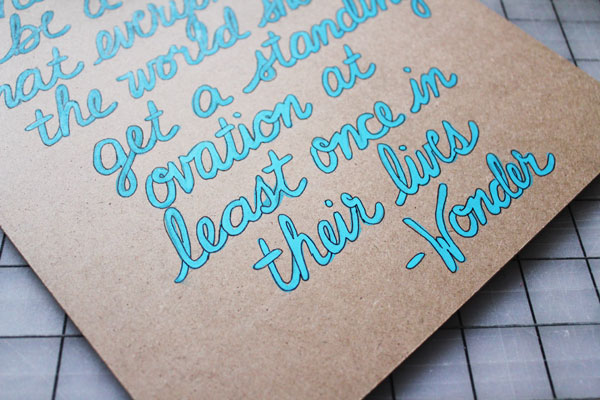 be a
the world
get a standing
ovation at
least once in
their lives
-Wonder